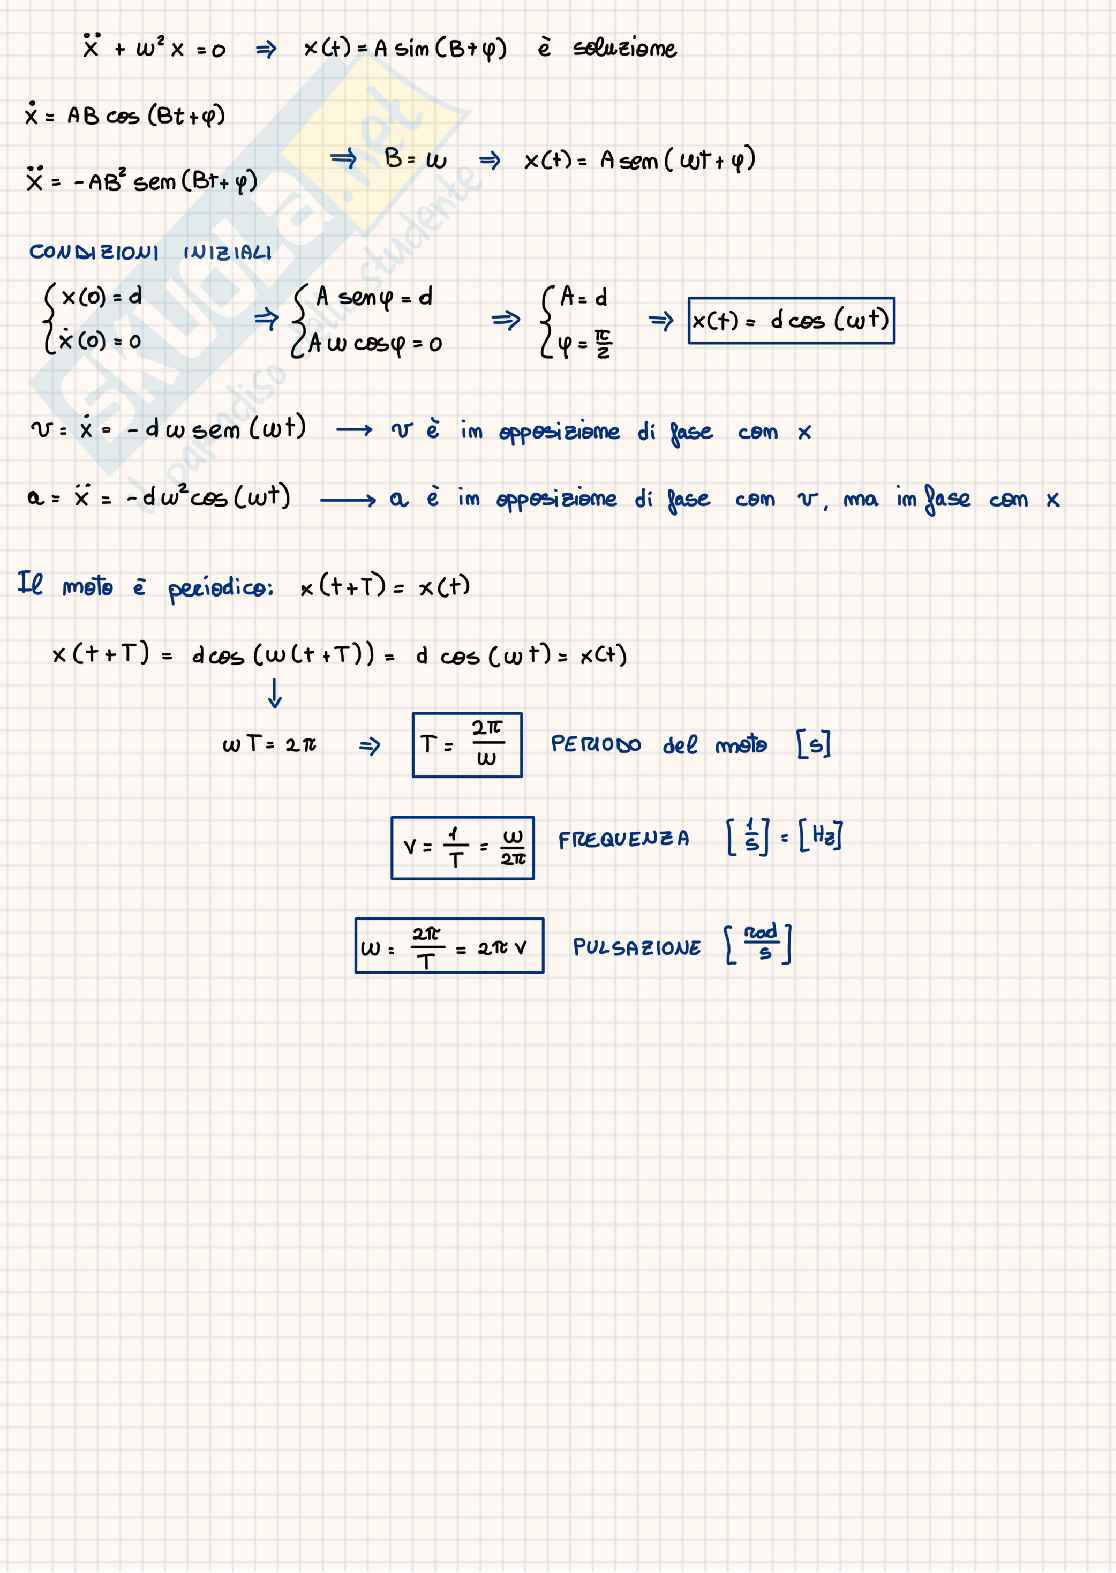 ẍ + ω² x = 0 ⇒ x(t) = A sin (B+φ) è soluzione
ẋ = AB cos (Bt+φ)
⇒ B = ω ⇒ x(t) = A sen (ωt + φ)
ẍ = -AB² sen (Bt+φ)
CONDIZIONI INIZIALI
{ x(0) = d ⇒ { A sen φ = d ⇒ { A = d ⇒ x(t) = d cos (ωt)
ẋ(0) = 0 A ω cos φ = 0 φ = π/2
v = ẋ = - d ω sen (ωt) → v è in opposizione di fase con x
a = ẍ = - d ω² cos (ωt) → a è in opposizione di fase con v, ma in fase con x
Il moto è periodico: x(t+T) = x(t)
x(t+T) = d cos (ω(t+T)) = d cos (ωt) = x(t)
↓
ωT = 2π ⇒ T = 2π/ω PERIODO del moto [s]
ν = 1/T = ω/2π FREQUENZA [1/s] = [Hz]
ω = 2π/T = 2π ν PULSAZIONE [rad/s]
SKUOLA.net
il paradiso dello studente